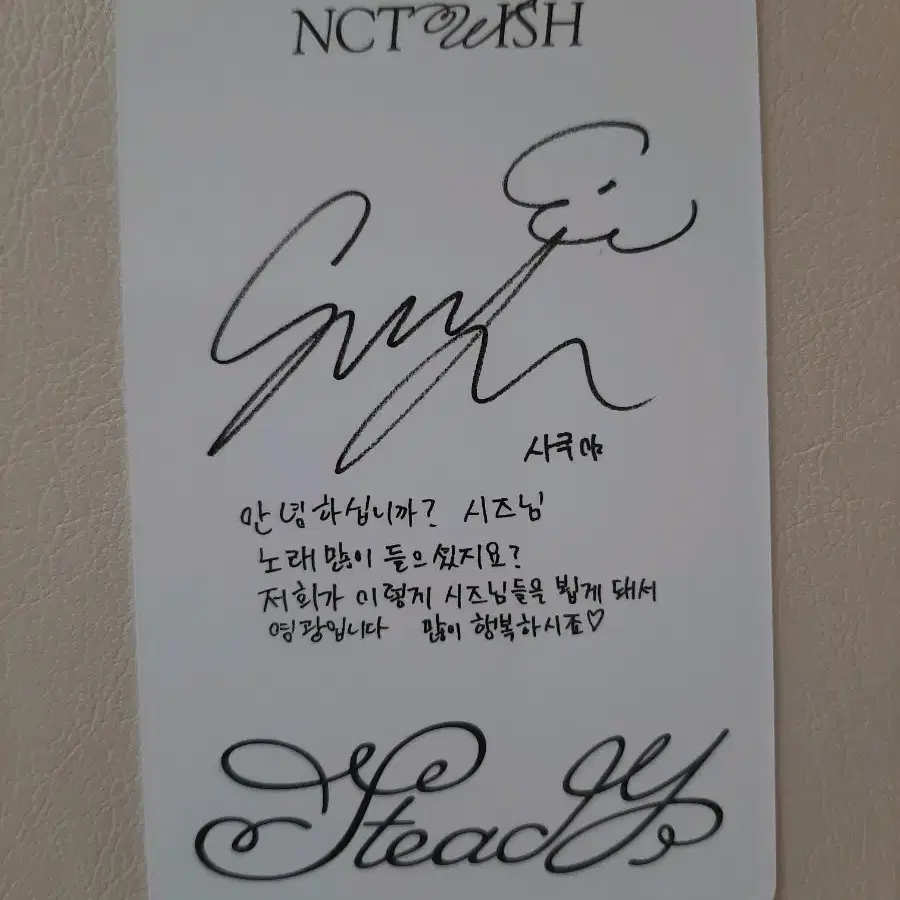 NCT WISH
사쿠야
안녕하십니까? 시즈님
노래 많이 들으셨지요?
저희가 이렇게 시즈님들을 뵙게 돼서
영광입니다 많이 행복하시죠♡
Steady